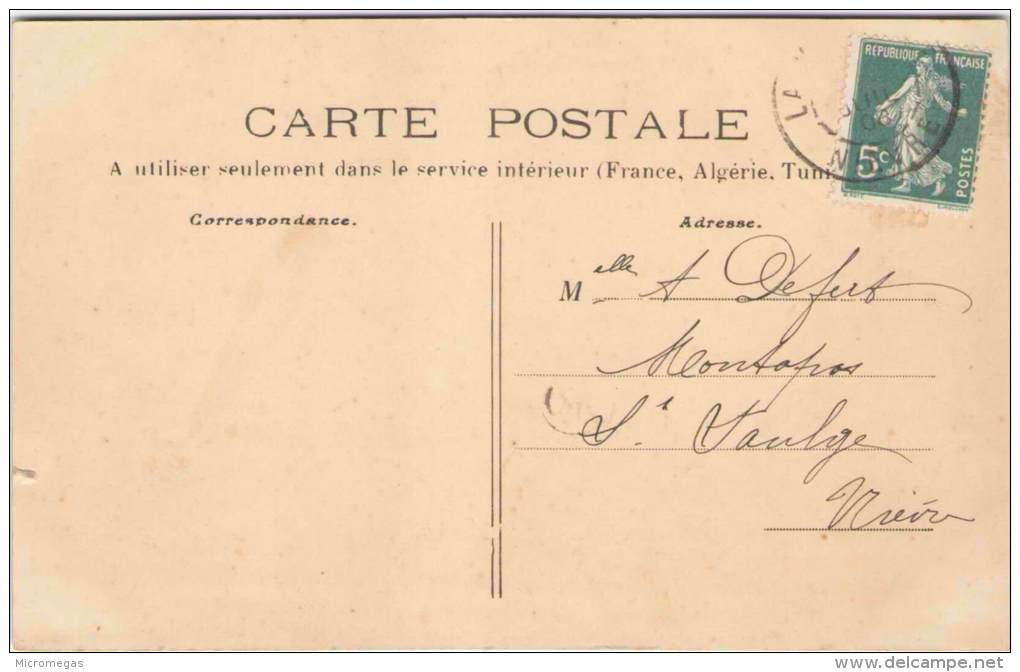 CARTE POSTALE
A utiliser seulement dans le service intérieur (France, Algérie, Tuni
RÉPUBLIQUE FRANÇAISE
LA
5c
POSTES
Correspondance.
Adresse.
Melle A Defert
Montapas
St Saulge
Nièvre
Micromegas
www.delcampe.net